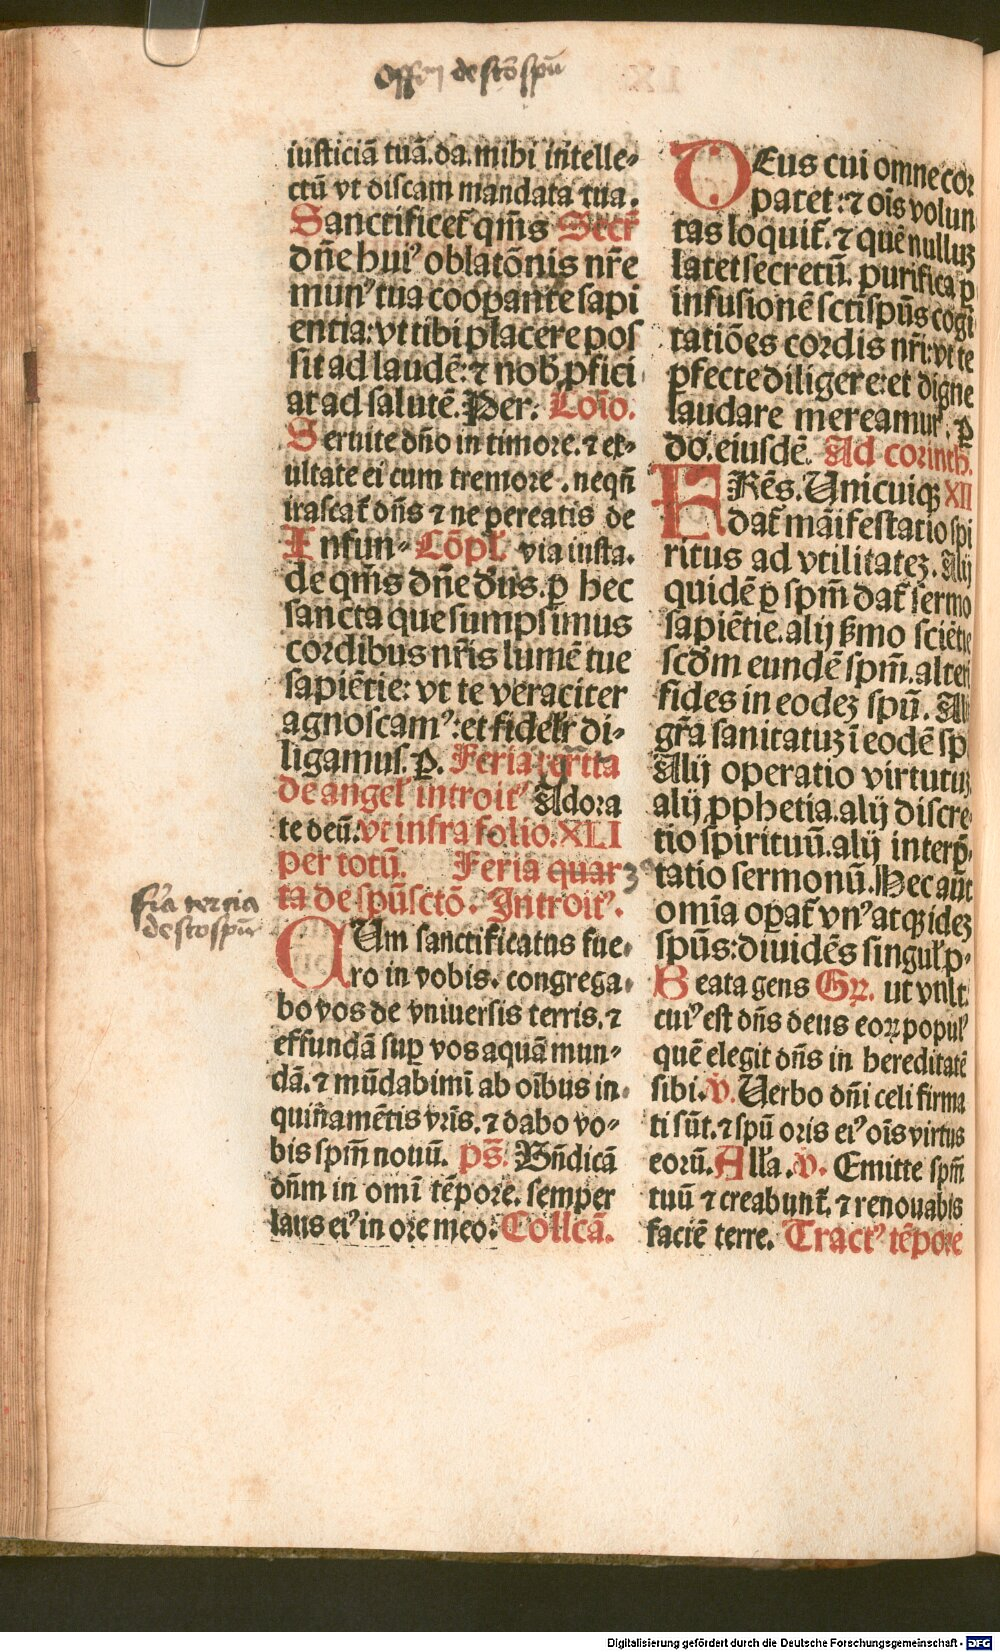 Offm de sctō spū
iusticiā tuā. da. mihi intelle⸗
ctū vt discam mandata tua.
Sanctificet̄ qm̄s Secr̄
dn̄e huiꝰ oblatōnis nr̄e
munꝰ tua cooꝑante sapi
entia: vt tibi placere pos
sit ad laudē: ⁊ nob̄ ꝓfici
at ad salutē. Per. Loīo.
Seruite dn̄o in timore. ⁊ ex⸗
ultate ei cum tremore. neqn̄
irascat̄ dn̄s ⁊ ne pereatis de
Infun⸗ Cōpl̄. via iusta.
de qm̄s dn̄e d̄us. ꝑ hec
sancta que sumpsimus
cordibus nr̄is lumē tue
sapiētie: vt te veraciter
agnoscamꝰ: et fidelr̄ di⸗
ligamus. ꝑ. Feria
de angel̄ introitꝰ Adora
te deū. vt infra folio. XLI
per totū. Feria quar 3ᵃ
ta de spū sctō. Introitꝰ.
CUm sanctificatus fue⸗
ro in vobis. congrega⸗
bo vos de vniuersis terris. ⁊
effundā suꝑ vos aquā mun⸗
dā. ⁊ mūdabimī ab oībus in⸗
quin̄amētis vr̄is. ⁊ dabo vo⸗
bis spm̄ nouū. ps̄. Bn̄dicā
dn̄m in omī tēpore. semper
laus eiꝰ in ore meo. Collcā.
fr̄ia tercia
de sto spū
DEus cui omne cor
patet: ⁊ oīs volun
tas loquit̄. ⁊ quē nulluꝫ
latet secretū. purifica ꝑ
infusionē scti spūs cogi
tatiōes cordis nr̄i: vt te
ꝑfecte diligere: et digne
laudare mereamur. ꝑ
do. eiusdē. Ad corinth̄.
FRēs. Unicuiqꝫ XII
dat̄ māifestatio spi
ritus ad vtilitateꝫ. Alij
quidē ꝑ spm̄ dat̄ sermo
sapiētie. alij ßmo sciētie
scd̄m eundē spm̄. alteri
fides in eodeꝫ spū. Alij
gr̄a sanitatuꝫ ī eodē sp
Alij operatio virtutuꝫ
alij ꝓphetia. alij discre
tio spirituū. alij interp̄⸗
tatio sermonū. Hec aūt
omīa oꝑat̄ vnꝰ atqꝫ ideꝫ
spūs: diuidēs singul̄ p⸗
Beata gens Gꝝ. ut vult.
cuiꝰ est dn̄s deus eoꝝ populꝰ
quē elegit dn̄s in hereditatē
sibi. v̄. Uerbo dn̄i celi firma
ti sūt. ⁊ spū oris eiꝰ oīs virtus
eorū. Alla. v̄. Emitte spm̄
tuū ⁊ creabunt̄. ⁊ renouabis
faciē terre. Tractꝰ tēpore
Digitalisierung gefördert durch die Deutsche Forschungsgemeinschaft - DFG